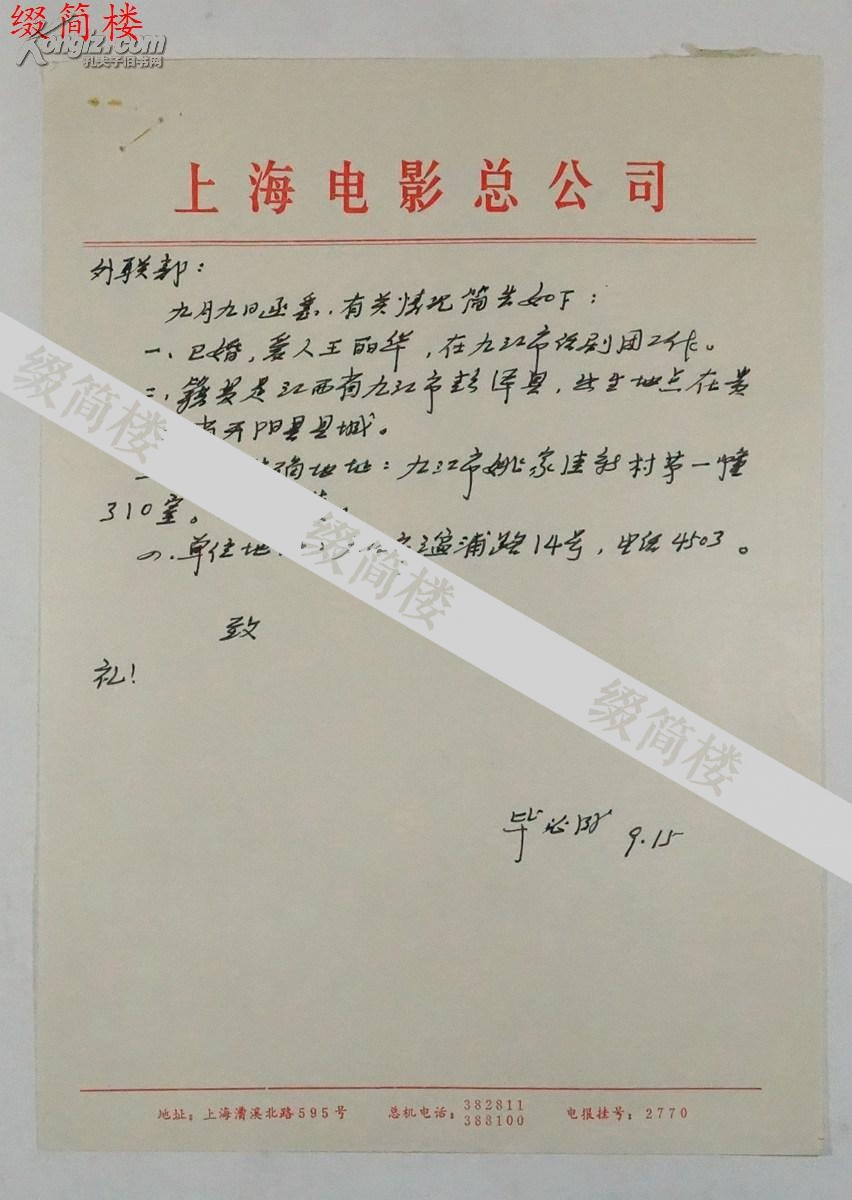 缀简楼
Kongfz.com
孔夫子旧书网
上海电影总公司
外联部：
九月九日函悉，有关情况简告如下：
一、已婚，爱人王丽华，在九江市话剧团工作。
二、籍贯是江西省九江市彭泽县，出生地点在贵
省开阳县县城。
地址：九江市姚家洼新村第一幢
310室。
四、单位地 湓浦路14号，电话4503。
致
礼！
毕必成 9.15
缀简楼
缀简楼
缀简楼
地址：上海漕溪北路595号 总机电话：382811 388100 电报挂号：2770